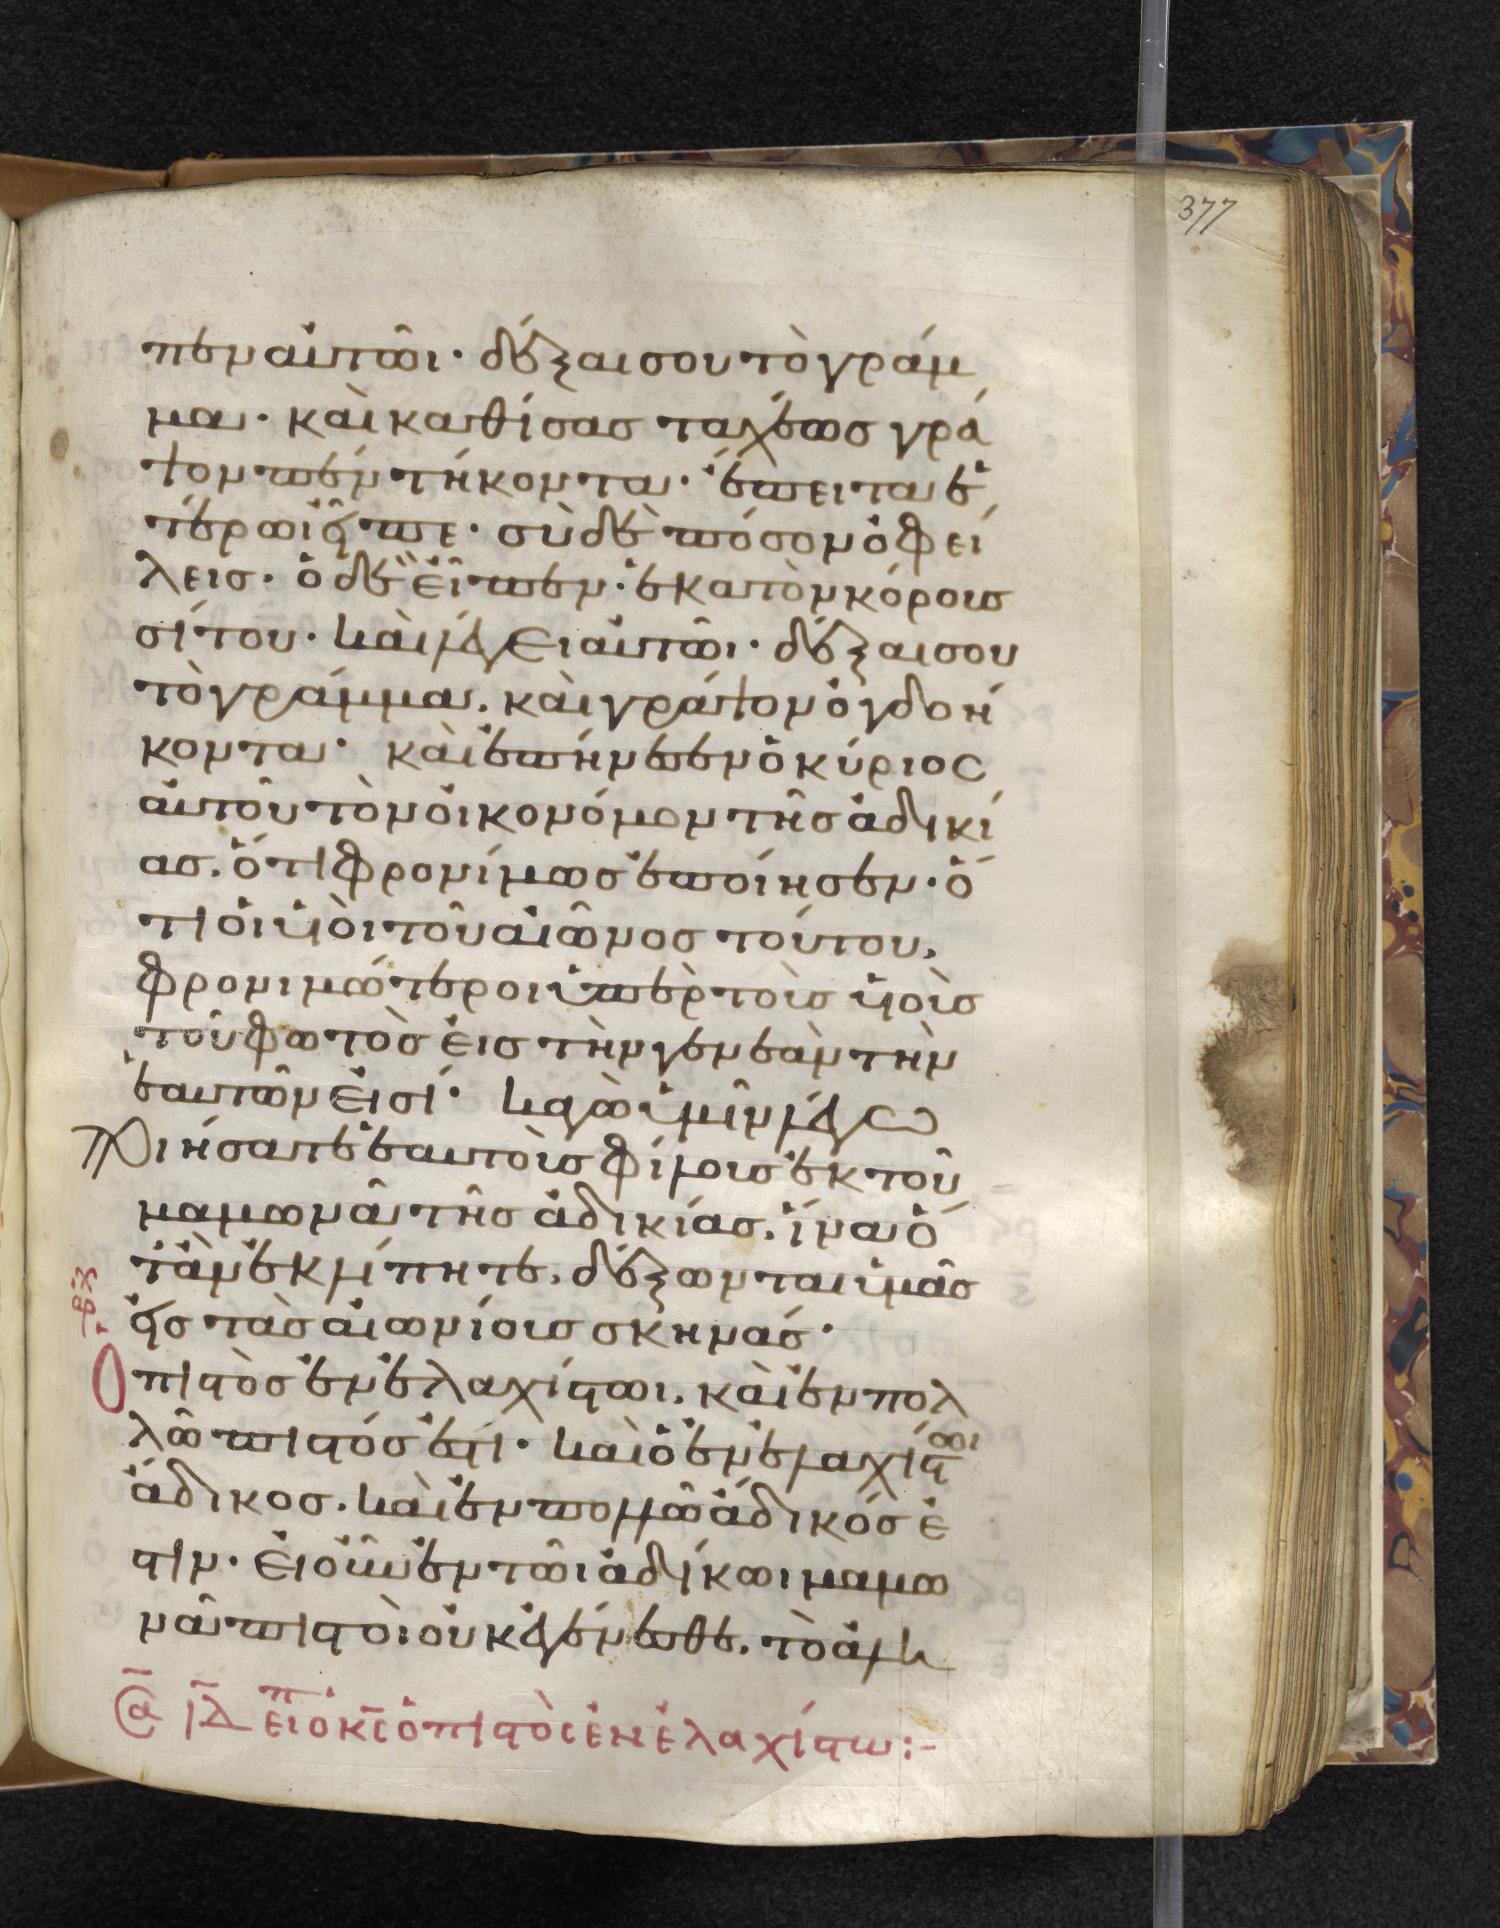 377
πεν αὐτῶι· δέξαι σου τὸ γράμ
μα· καὶ καθίσας ταχέως γρά
ψον πεντήκοντα· ἔπειτα ἑ
τέρωι εἶπε· σὺ δὲ πόσον ὀφεί
λεις· ὁ δὲ εἶπεν· ἑκατὸν κόρους
σίτου· καὶ λέγει αὐτῶι· δέξαι σου
τὸ γράμμα, καὶ γράψον ὀγδοή
κοντα· καὶ ἐπήνεσεν ὁ κύριος
αὐτοῦ τὸν οἰκονόμον τῆς ἀδικί
ας, ὅτι φρονίμως ἐποίησεν· ὅ
τι οἱ υἱοὶ τοῦ αἰῶνος τούτου,
φρονιμώτεροι ὑπὲρ τοὺς υἱοὺς
τοῦ φωτὸς εἰς τὴν γενεὰν τὴν
ἑαυτῶν εἰσί· κἀγὼ ὑμῖν λέγω
Ποιήσατε ἑαυτοῖς φίλους ἐκ τοῦ
μαμωνᾶ τῆς ἀδικίας, ἵνα ὅ
τἂν ἐκλίπητε, δέξωνται ὑμᾶς
εἰς τὰς αἰωνίους σκηνάς·
Ὁ πιστὸς ἐν ἐλαχίστωι, καὶ ἐν πολ
λῶ πιστός ἐστι· καὶ ὁ ἐν ἐλαχίστωι
ἄδικος, καὶ ἐν πολλῶ ἄδικός ἐ
στιν· εἰ οὖν ἐν τῶι ἀδίκωι μαμω
νᾶ πιστοὶ οὐκ ἐγένεσθε, τὸ ἀλη
εἶπ ὁ κς ὁ πιστὸς ἐν ἐλαχίστω:-